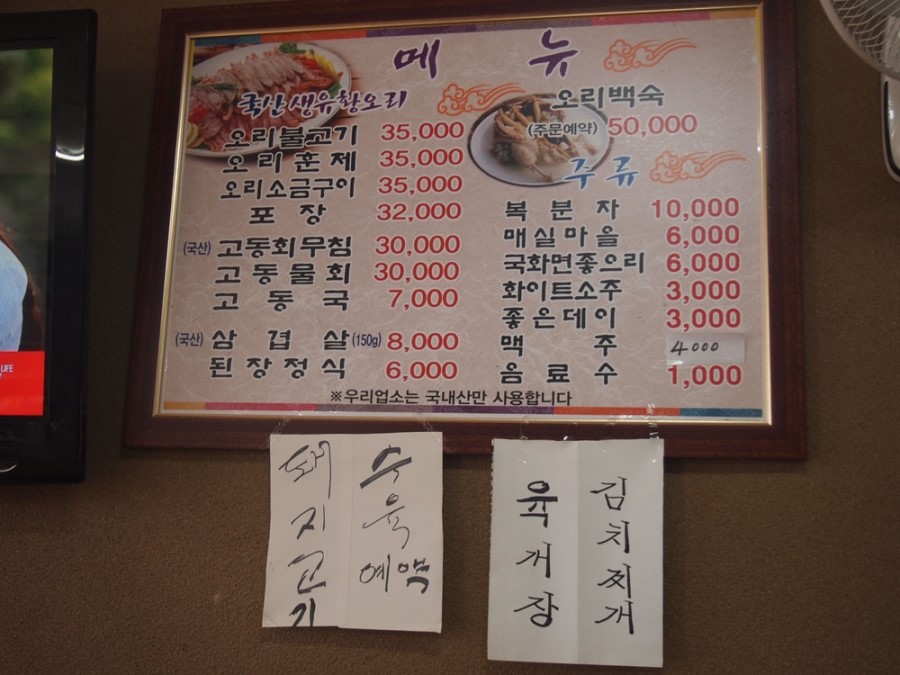 메 뉴
국산 생유황오리
오리불고기 35,000
오리훈제 35,000
오리소금구이 35,000
포장 32,000
(국산) 고동회무침 30,000
고동물회 30,000
고동국 7,000
(국산) 삼겹살 (150g) 8,000
된장정식 6,000
오리백숙
(주문예약) 50,000
주류
복분자 10,000
매실마을 6,000
국화면좋으리 6,000
화이트소주 3,000
좋은데이 3,000
맥주 4000
음료수 1,000
※우리업소는 국내산만 사용합니다
돼지고기
수육
예약
육개장
김치찌개
LIFE